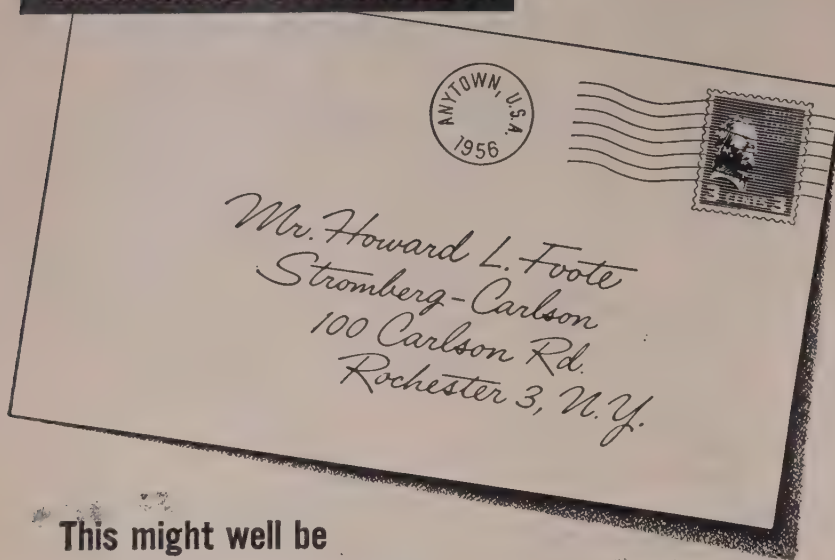 ANYTOWN, U.S.A.
1956
3 CENTS 3
Mr. Howard L. Foote
Stromberg-Carlson
100 Carlson Rd.
Rochester 3, N.Y.
This might well be